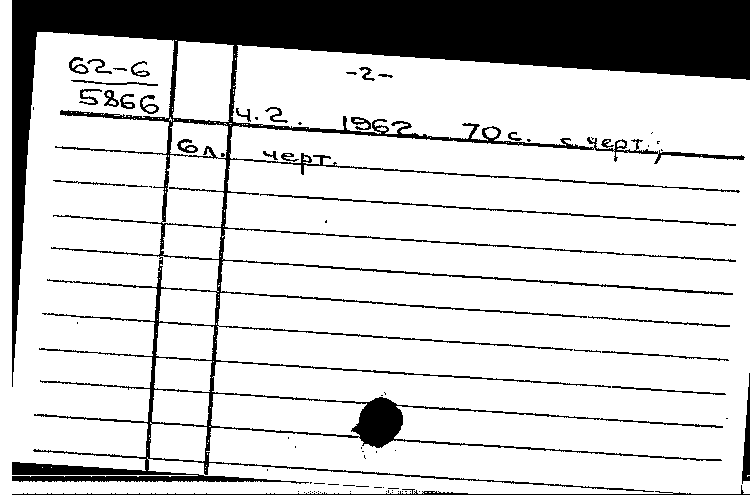 62-6
5866
-2-
ч.2. 1962. 70с. с черт.;
6л. черт.